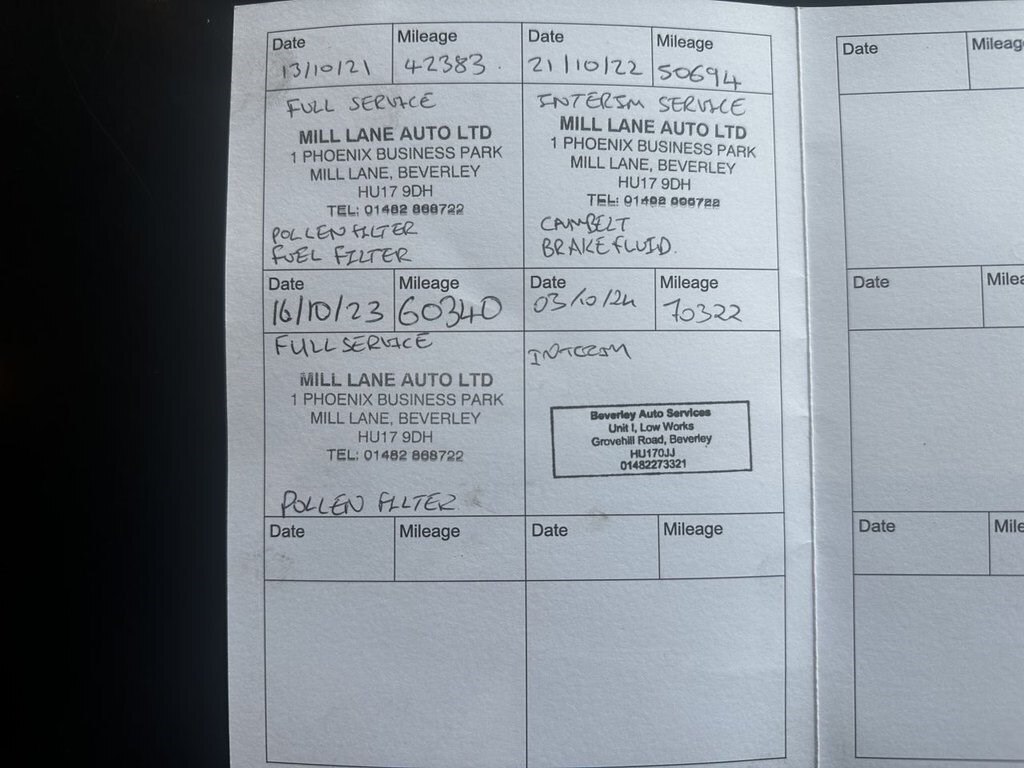 Date Mileage Date Mileage
13/10/21 42383. 21/10/22 50694
FULL SERVICE
MILL LANE AUTO LTD
1 PHOENIX BUSINESS PARK
MILL LANE, BEVERLEY
HU17 9DH
TEL: 01482 868722
POLLEN FILTER
FUEL FILTER
INTERIM SERVICE
MILL LANE AUTO LTD
1 PHOENIX BUSINESS PARK
MILL LANE, BEVERLEY
HU17 9DH
TEL: 01482 868722
CAMBELT
BRAKE FLUID.
Date Mileage Date Mileage
16/10/23 60340 03/10/24 70322
FULL SERVICE
MILL LANE AUTO LTD
1 PHOENIX BUSINESS PARK
MILL LANE, BEVERLEY
HU17 9DH
TEL: 01482 868722
POLLEN FILTER
INTERIM
Beverley Auto Services
Unit 1, Low Works
Grovehill Road, Beverley
HU170JJ
01482273321
Date Mileage Date Mileage
Date Mileag
Date Milea
Date Mile